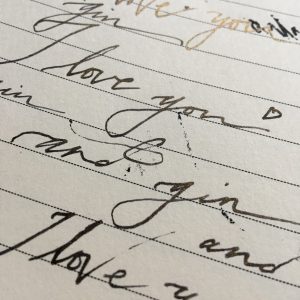 love you
gin
I love you
gin
and gin
and
I love